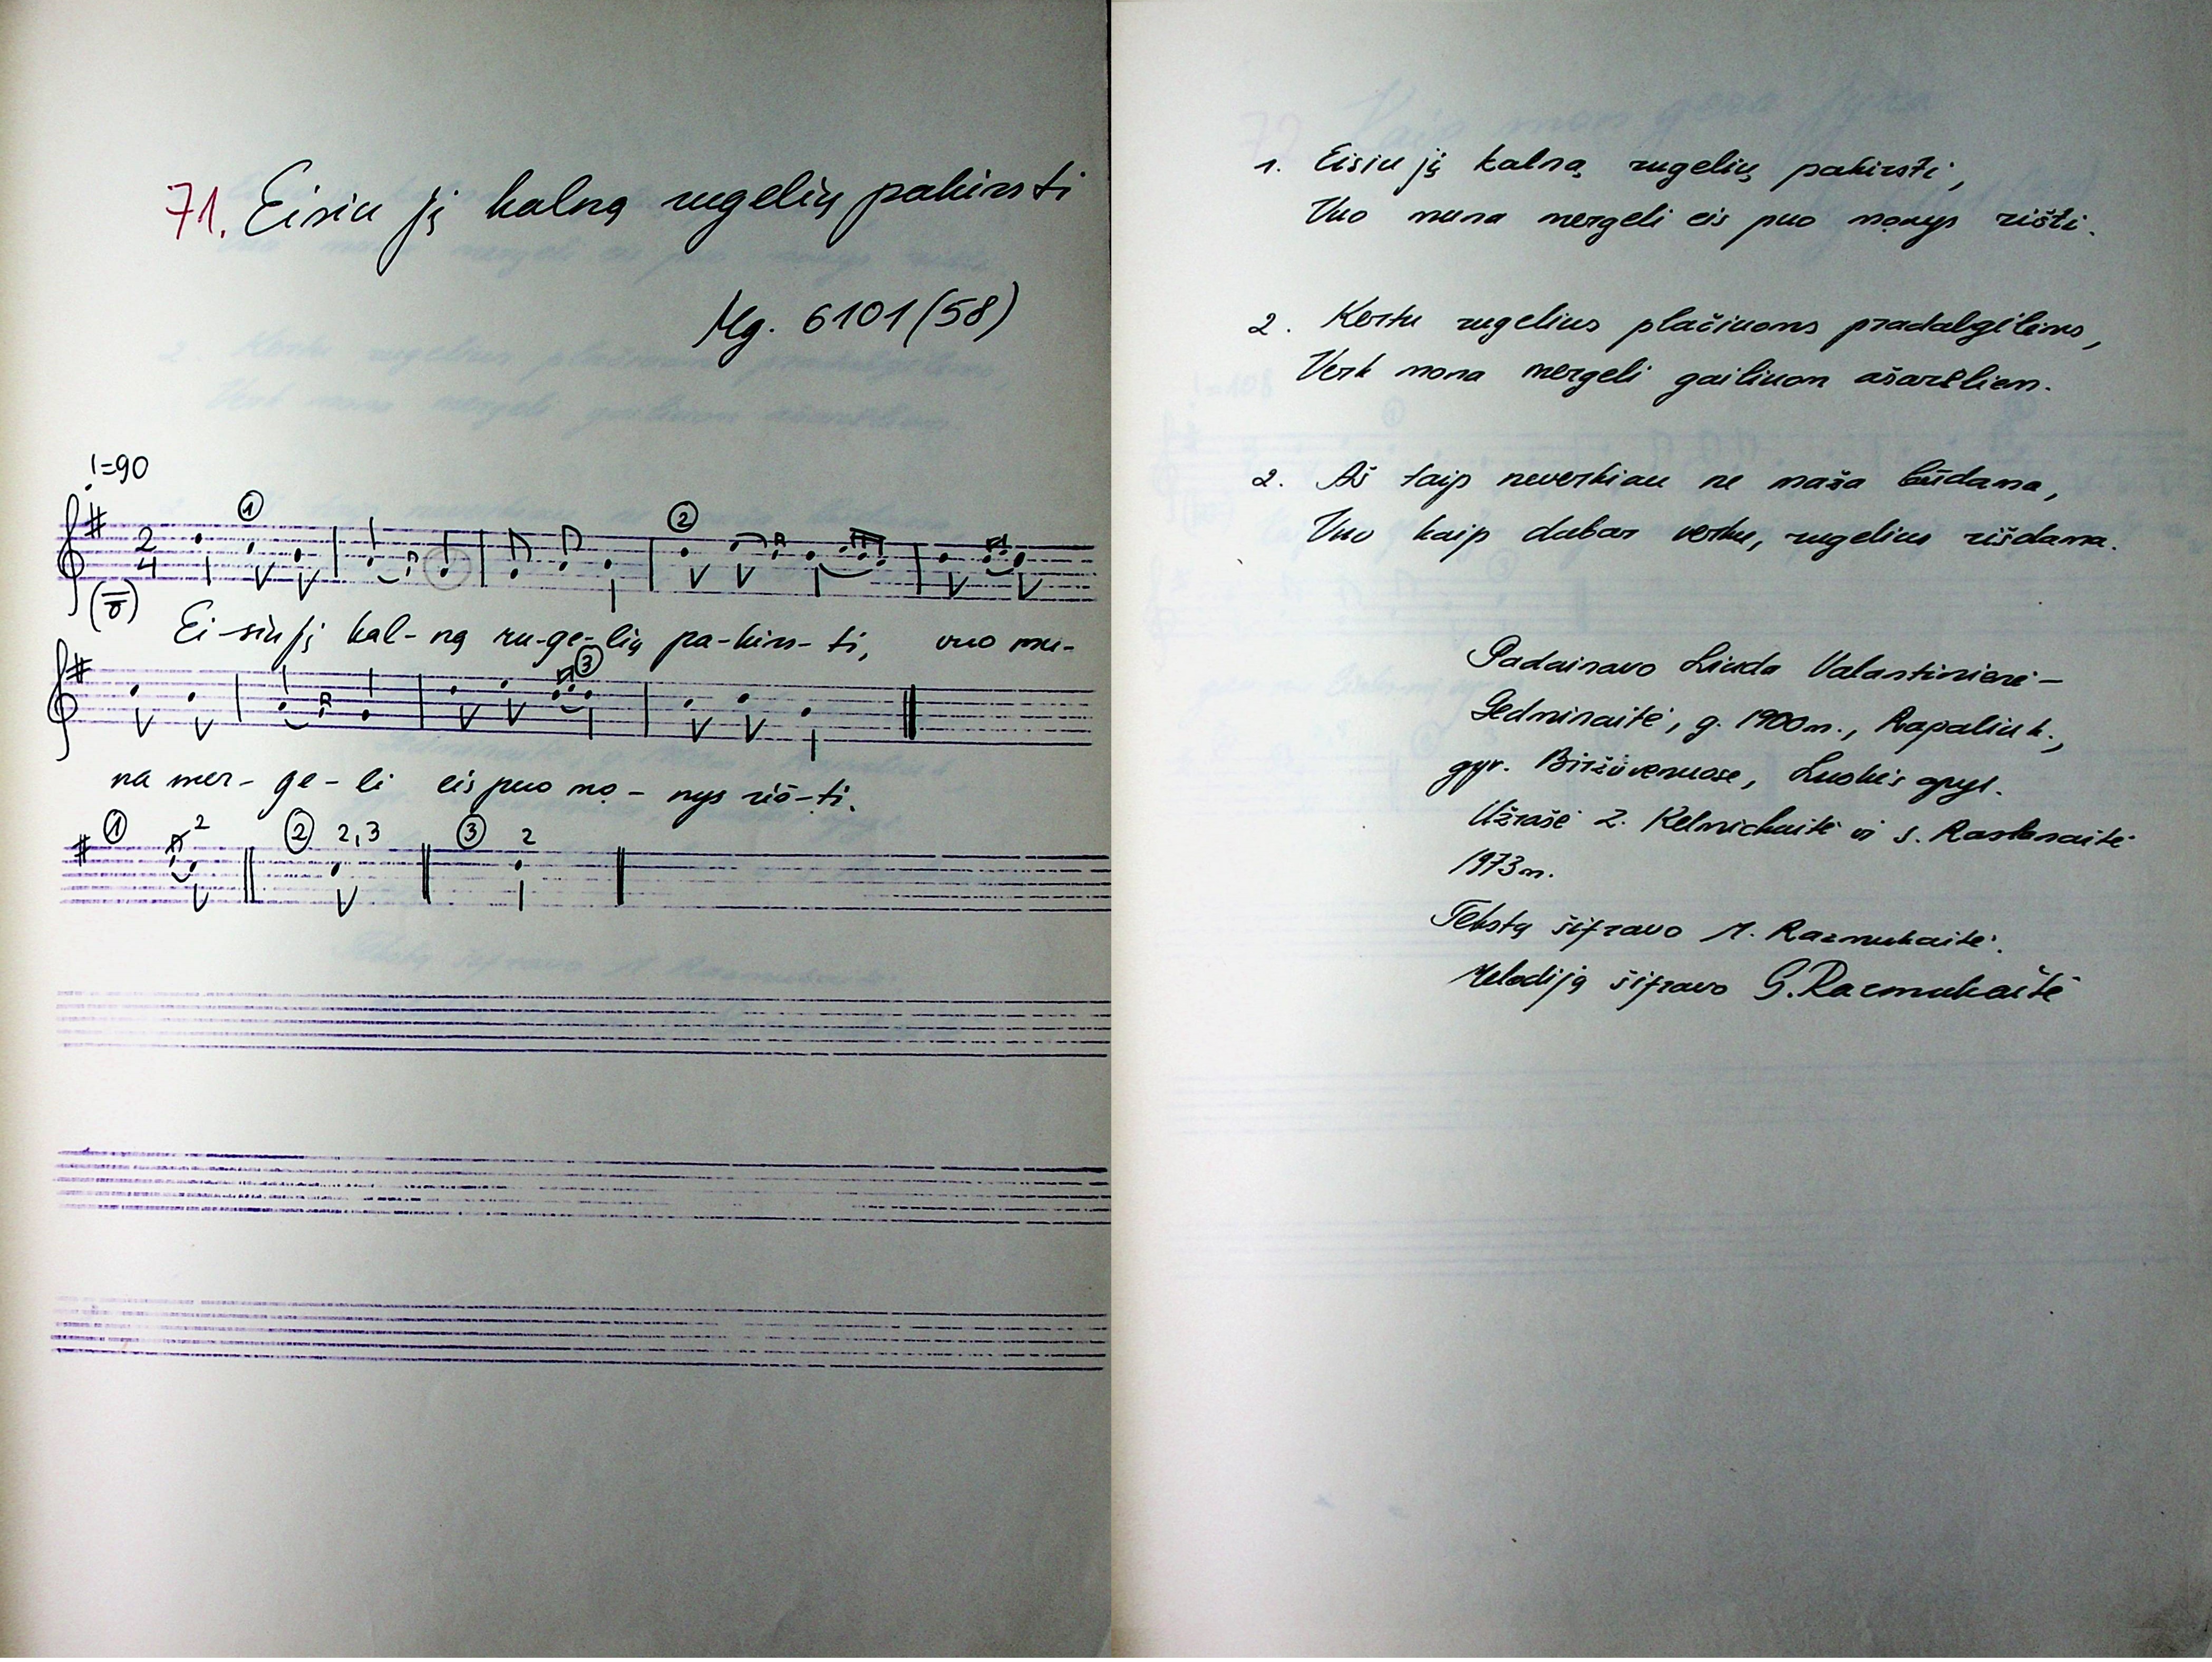 71. Eisiu jį kalną rugelių pakirsti
Mg. 6101(58)
♩=90
① ②
2
4
Ei-siu jį kal-ną ru-ge-lių pa-kirs-ti, vuo mu-
③
na mer-ge-li eis puo mo-nys riš-ti.
① 2 ② 2,3 ③ 2
1. Eisiu jį kalną rugelių pakirsti,
Vuo muna mergeli eis puo monys rišti.
2. Kertu rugelius plačiuoms pradalgėlems,
Verk mona mergeli gailiuom ašarėliem.
2. Aš taip neverkiau ne maža būdama,
Vuo kaip dabar verku, rugelius rišdama.
Padainavo Liuda Valantinienė-
Gedminaitė, g. 1900m., Rapalių k.,
gyv. Biržuvėnuose, Luokės apyl.
Užrašė Z. Kelmickaitė ir S.
1973m.
Tekstą šifravo M. Razmukaitė.
Melodiją šifravo G. Razmukaitė